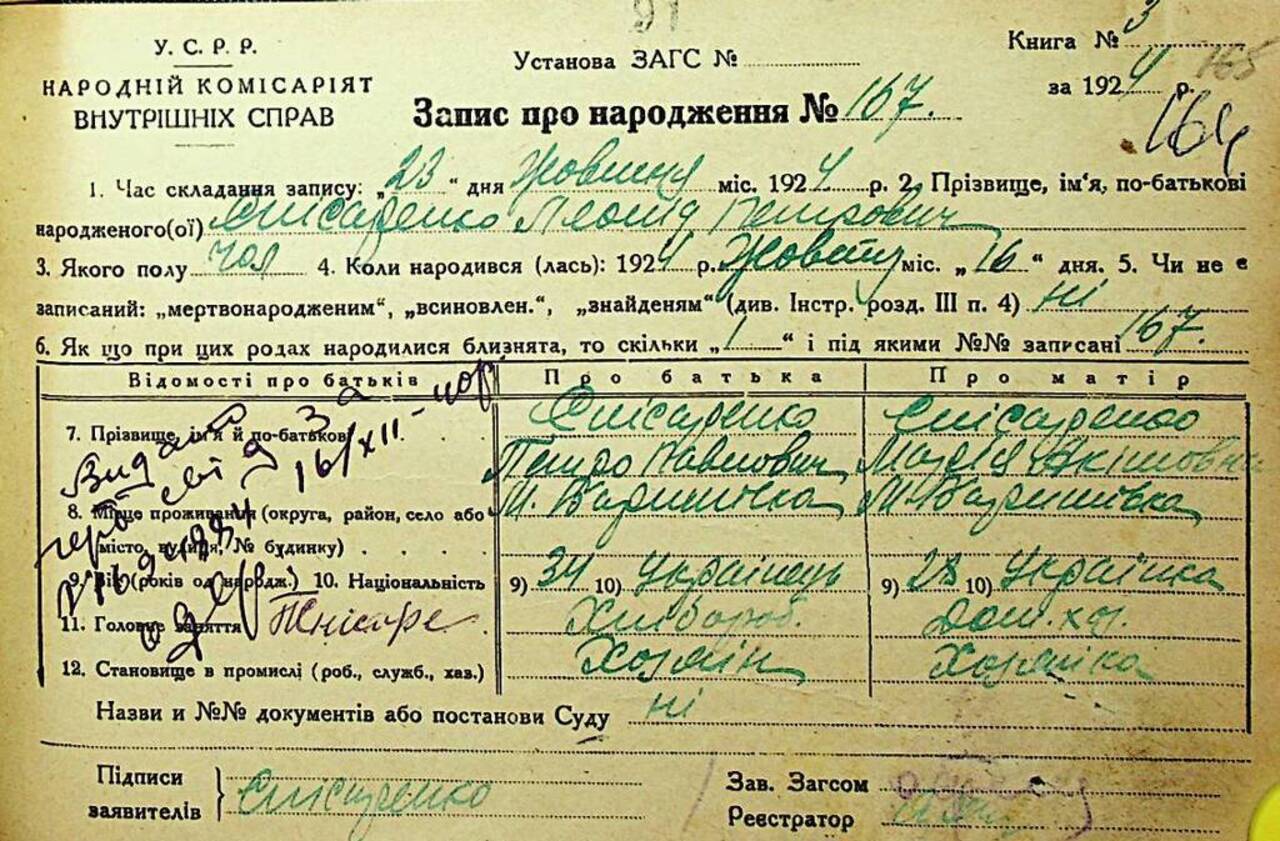 91
У. С. Р. Р.
НАРОДНІЙ КОМІСАРІЯТ
ВНУТРІШНІХ СПРАВ
Установа ЗАГС №
Книга № 3
за 1924 р. 165
164
Запис про народження № 167.
1. Час складання запису: „23“ дня Жовтня міс. 1924 р. 2. Прізвище, ім'я, по-батькові
народженого(ої) Єпісаренко Леонід Петрович
3. Якого полу чол 4. Коли народився (лась): 1924 р. Жовтн міс. „16“ дня. 5. Чи не є
записаний: „мертвонародженим“, „всиновлен.“, „знайденям“ (див. Інстр. розд. III п. 4) ні
6. Як що при цих родах народилися близнята, то скільки „1“ і під якими №№ записані 167.
Відомості про батьків Про батька Про матір
7. Прізвище, ім'я й по-батькові Єпісаренко Єпісаренко
Петро Павлович Марія Якімовна
8. Місце проживання (округа, район, село або М. Баришівка М. Баришівка
місто, вулиця, № будинку)
9. Вік (років од народж.) 10. Національність 9) 34 10) Українець 9) 28 10) Українка
11. Головне заняття Хлібороб. Дом. хоз.
12. Становище в промислі (роб., служб., хаз.) Хозяін Хозяйка
Видана
за
16/XII
Назви и №№ документів або постанови Суду ні
Підписи
заявителів Єпісаренко
Зав. Загсом
Реєстратор